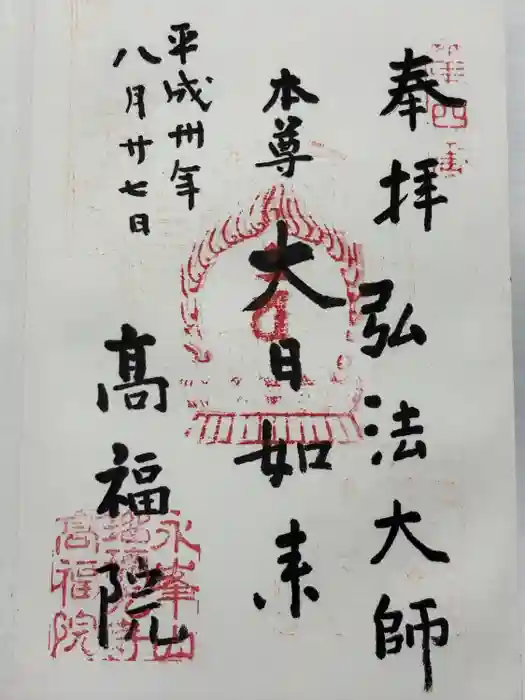 奉拝 弘法大師
本尊 大日如来
平成卅年
八月廿七日
髙福院
永峯山
高福院